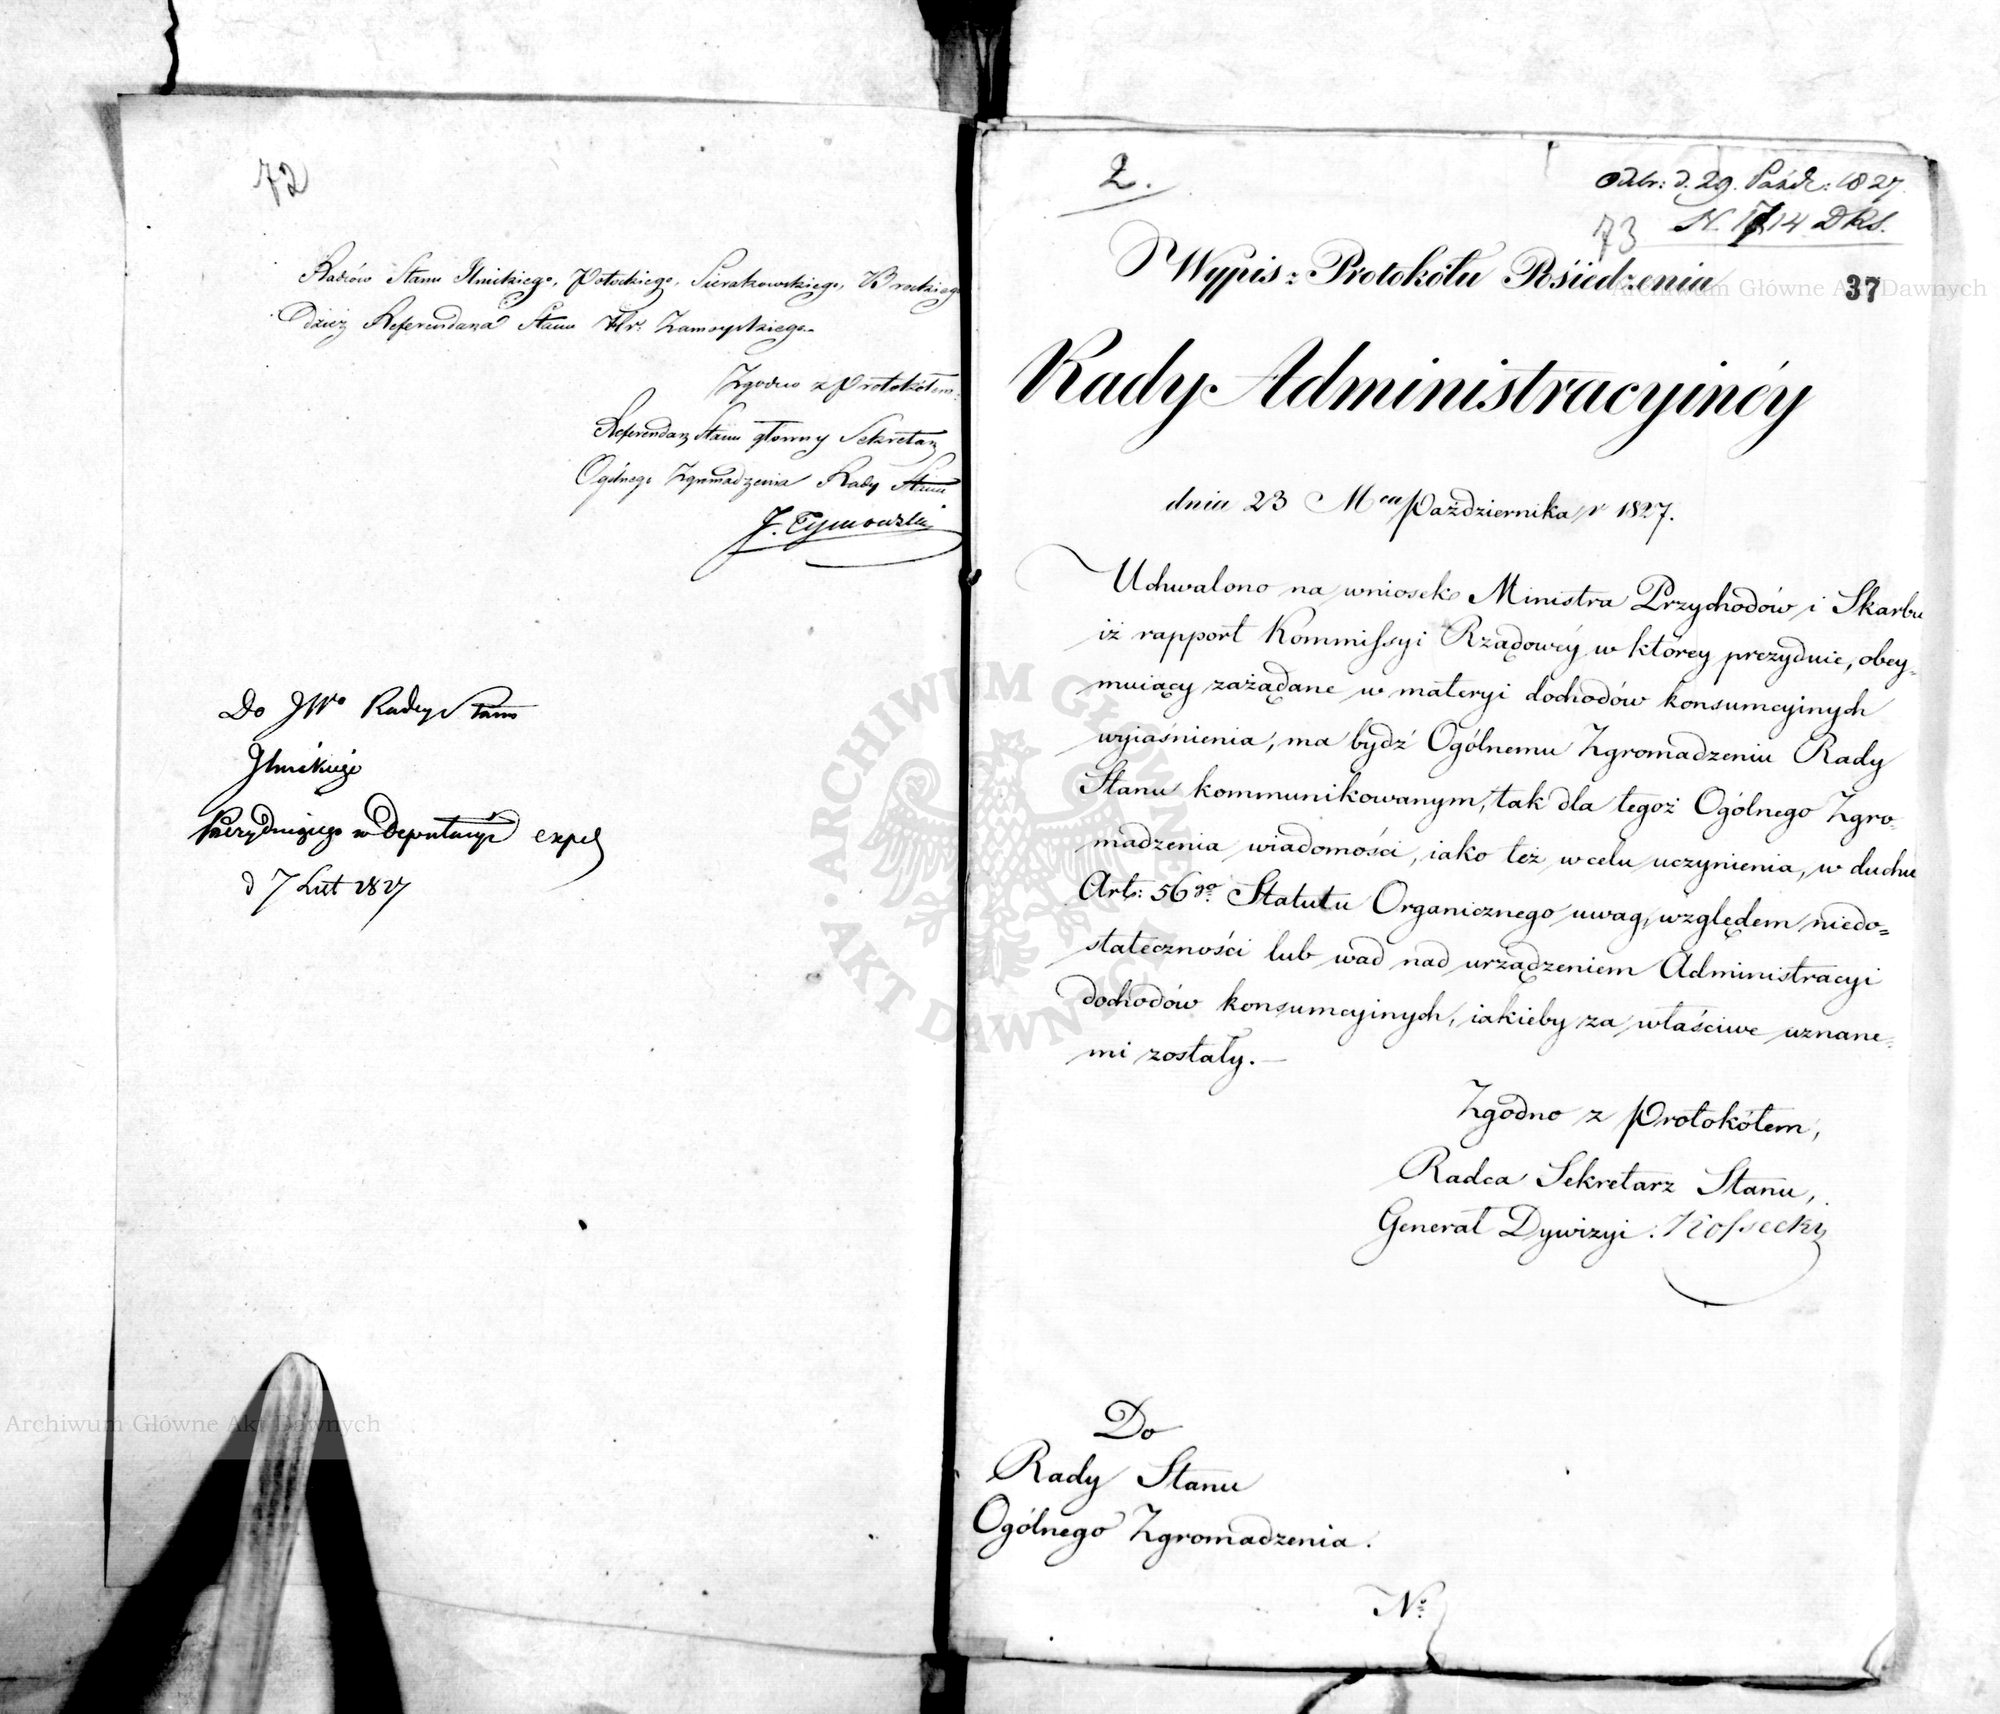 72
Radców Stanu Ilnickiego, Potockiego, Sierakowskiego, Brockiego
tudzież Referendarza Stanu Hr. Zamoyskiego.
Zgodno z protokółem.
Referendarz Stanu główny Sekretarz
Ogólnego Zgromadzenia Rady Stanu
J. Tymowski
Do JWo Radcy Stanu
Ilnickiego
Prezydującego w Deputacyi exped
d 7 Lut 1827
2.
odebr: d. 29. Paźdz: 1827.
73 N. 1714 DRS.
Wypis z Protokółu Posiedzenia
37
Rady Administracyinéy
dnia 23 Mca Października r 1827.
Uchwalono na wniosek Ministra Przychodów i Skarbu
iż rapport Kommissyi Rządowéy w któréy prezyduie, obey-
muiący zażądane w materyi dochodów konsumcyinych
wyiaśnienia, ma bydź Ogólnemu Zgromadzeniu Rady
Stanu kommunikowanym, tak dla tegoż Ogólnego Zgro-
madzenia wiadomości, iako też w celu uczynienia, w duchu
Art: 56go Statutu Organicznego uwag, względem niedo=
stateczności lub wad nad urządzeniem Administracyi
dochodów konsumcyinych, iakieby za właściwe uznane-
mi zostały.—
Zgodno z protokółem,
Radca Sekretarz Stanu,
Generał Dywizyi: Kossecki
Do
Rady Stanu
Ogólnego Zgromadzenia.
No
Archiwum Główne Akt Dawnych
Archiwum Główne Akt Dawnych
ARCHIWUM GŁÓWNE AKT DAWNYCH